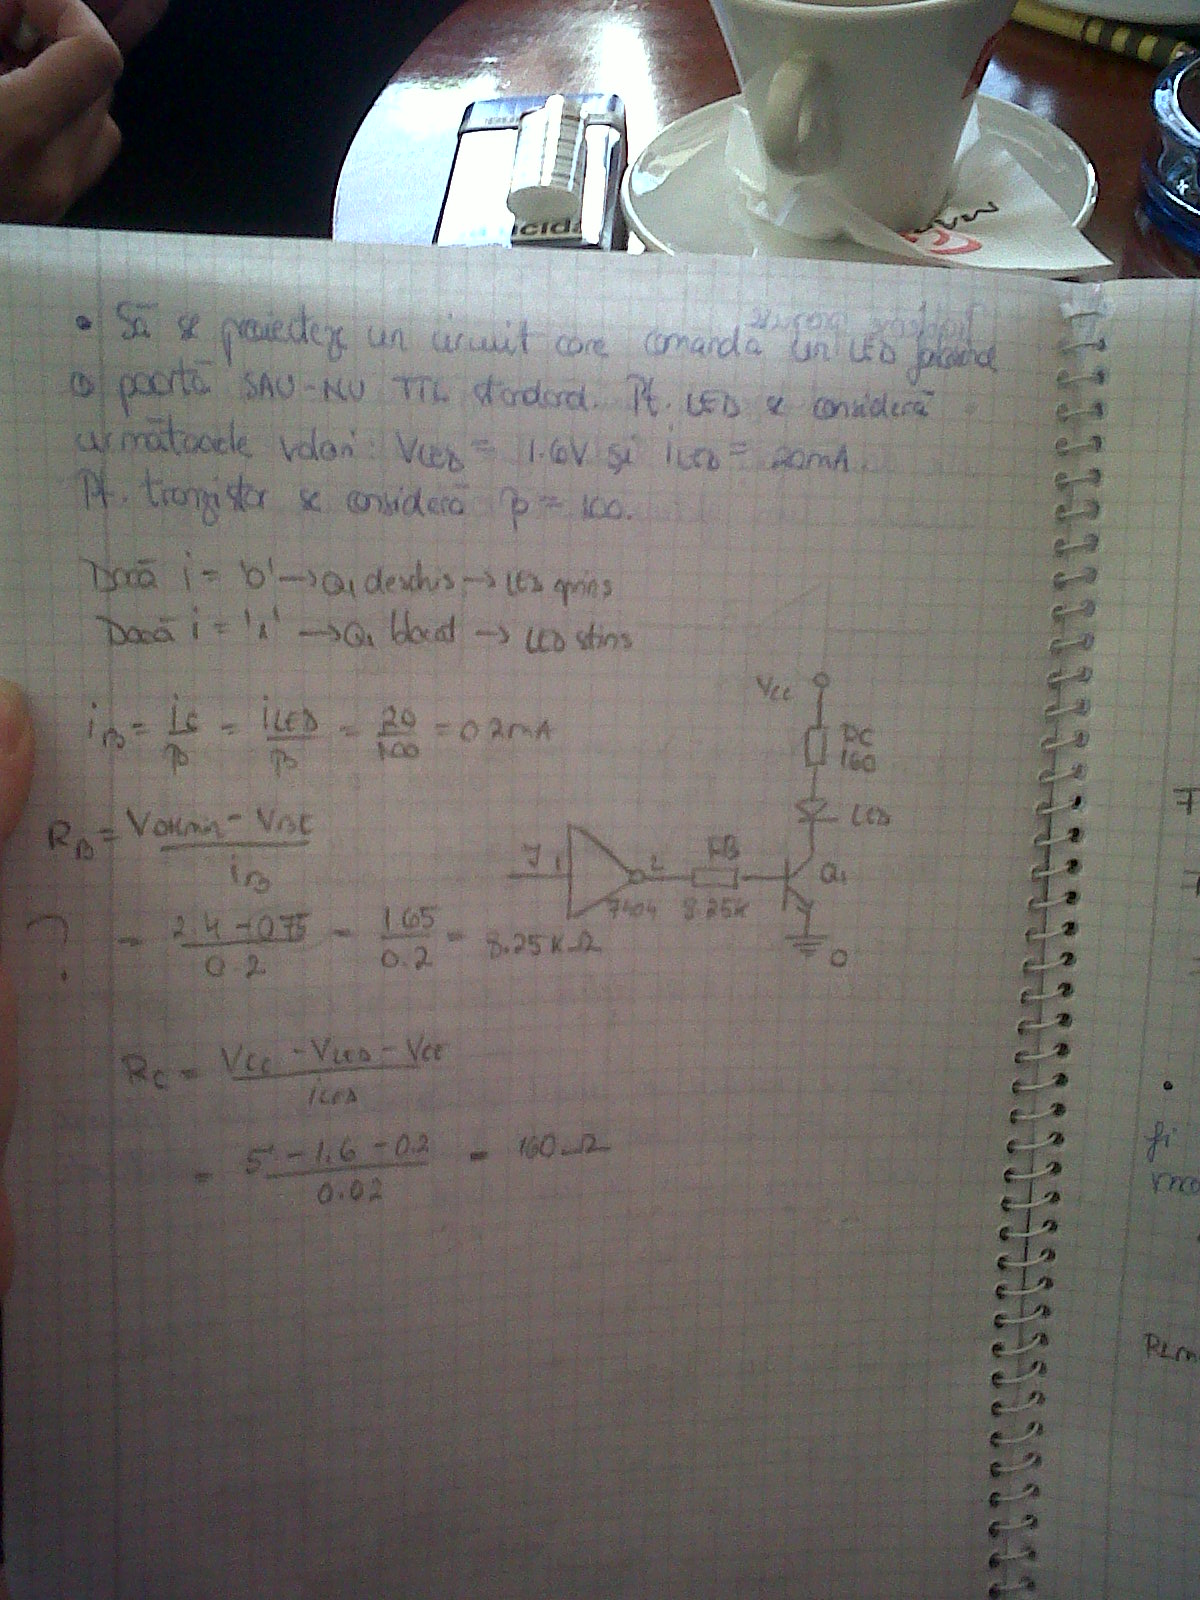 • Să se proiecteze un circuit care comandă un LED folosind
o poartă SAU-NU TTL standard. Pt. LED se consideră
următoarele valori: VLED = 1.6V și iLED = 20mA
Pt. tranzistor se consideră β = 100.
Dacă i = '0' → Q1 deschis → LED aprins
Dacă i = '1' → Q1 blocat → LED stins
iB = iC/β = iLED/β = 20/100 = 0.2mA
RB = (VOHmin - VBE)/iB
? = (2.4 - 0.75)/0.2 = 1.65/0.2 = 8.25KΩ
Vcc
RC
160
LED
1 2 RB Q1
7404 8.25K
0
RC = (VCC - VLED - VCE)/iLED
= (5 - 1.6 - 0.2)/0.02 = 160Ω